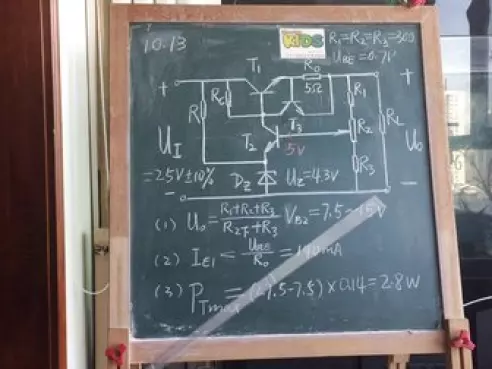 10.13
KIDS
R₁=R₂=R₃=300
U_BE=0.7V
T₁
R₀
5Ω
+
+
R
R_C
R₁
T₃
R₂
R_L
U_I
T₂
5V
U₀
=25V±10%
D_Z
U_Z=4.3V
R₃
-
-
(1) U₀=(R₁+R₂+R₃)/(R₂下+R₃) V_B2=7.5~15V
(2) I_E1=U_BE/R₀=140mA
(3) P_Tmax=(27.5-7.5)×0.14=2.8W